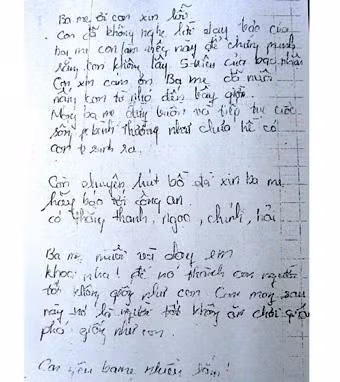 Ba mẹ ơi con xin lỗi.
Con đã không nghe lời dạy bảo của
ba mẹ con làm này để chứng minh
rằng con không lấy 5 triệu của bạc
Con xin cảm ơn Ba mẹ đã nuôi
nấng con từ nhỏ đến bây giờ.
Mong ba mẹ đừng buồn và tiếp tục cuộc
sống bình thường như chưa hề có
con sinh ra.
Còn chuyện hút bồ đà xin ba mẹ
hãy báo với công an.
có thằng thanh, ngọc, chính, hải
Ba mẹ nuôi và dạy em
khoa nha! để nó thành con người
tốt không giống như con Con mong sau
này nó là người tốt không ăn chơi quậy
phá giống như con.
Con yêu bame nhiều lắm!